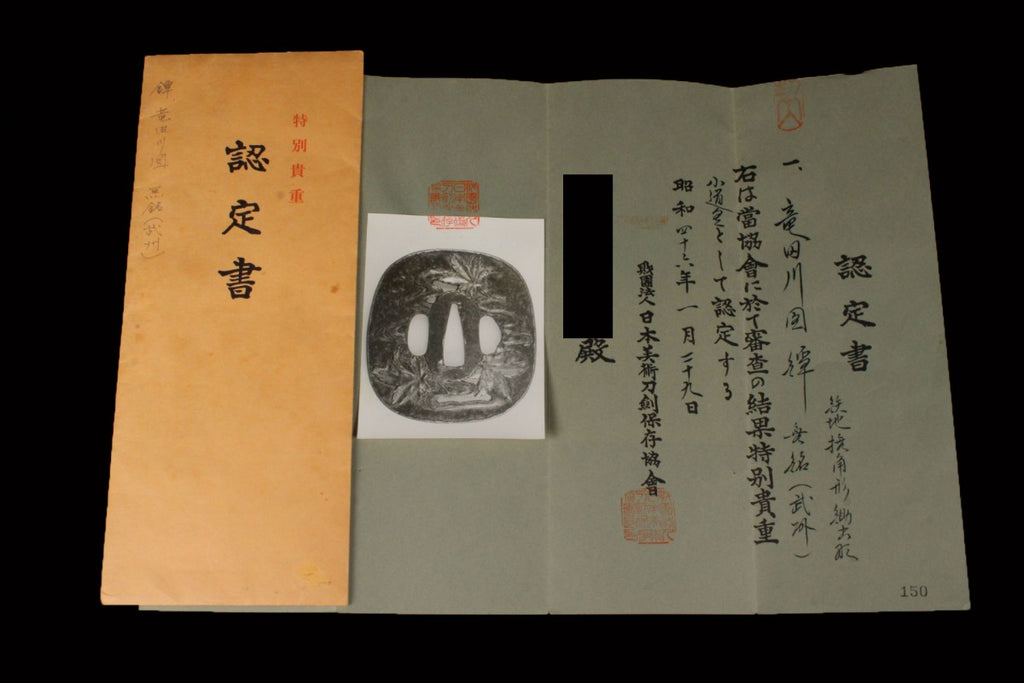 認定書
一、竜田川図鐔 無銘(武州)
鉄地撓角形鋤出彫
右は當協會に於て審査の結果特別貴重
小道具として認定する
昭和四十三年一月二十九日
財團法人日本美術刀劍保存協會
殿
150
特別貴重
認定書
鐔 竜田川図 無銘(武州)